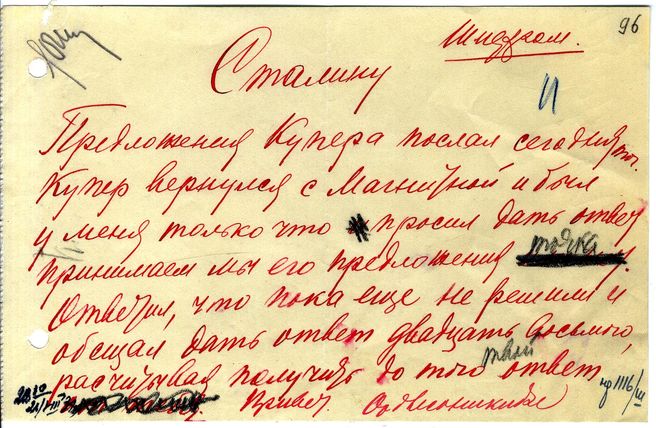 96
Шифром.
Сталину
11
Предложения Купера послал сегодня
Купер вернулся с Магнитной и был
у меня только что просил дать ответ
принимаем мы его предложения точка
Ответил, что пока еще не решили и
обещал дать ответ двадцать восьмого,
расчитывая получить до того твой ответ
Привет. Орджоникидзе
нр 1116/ш